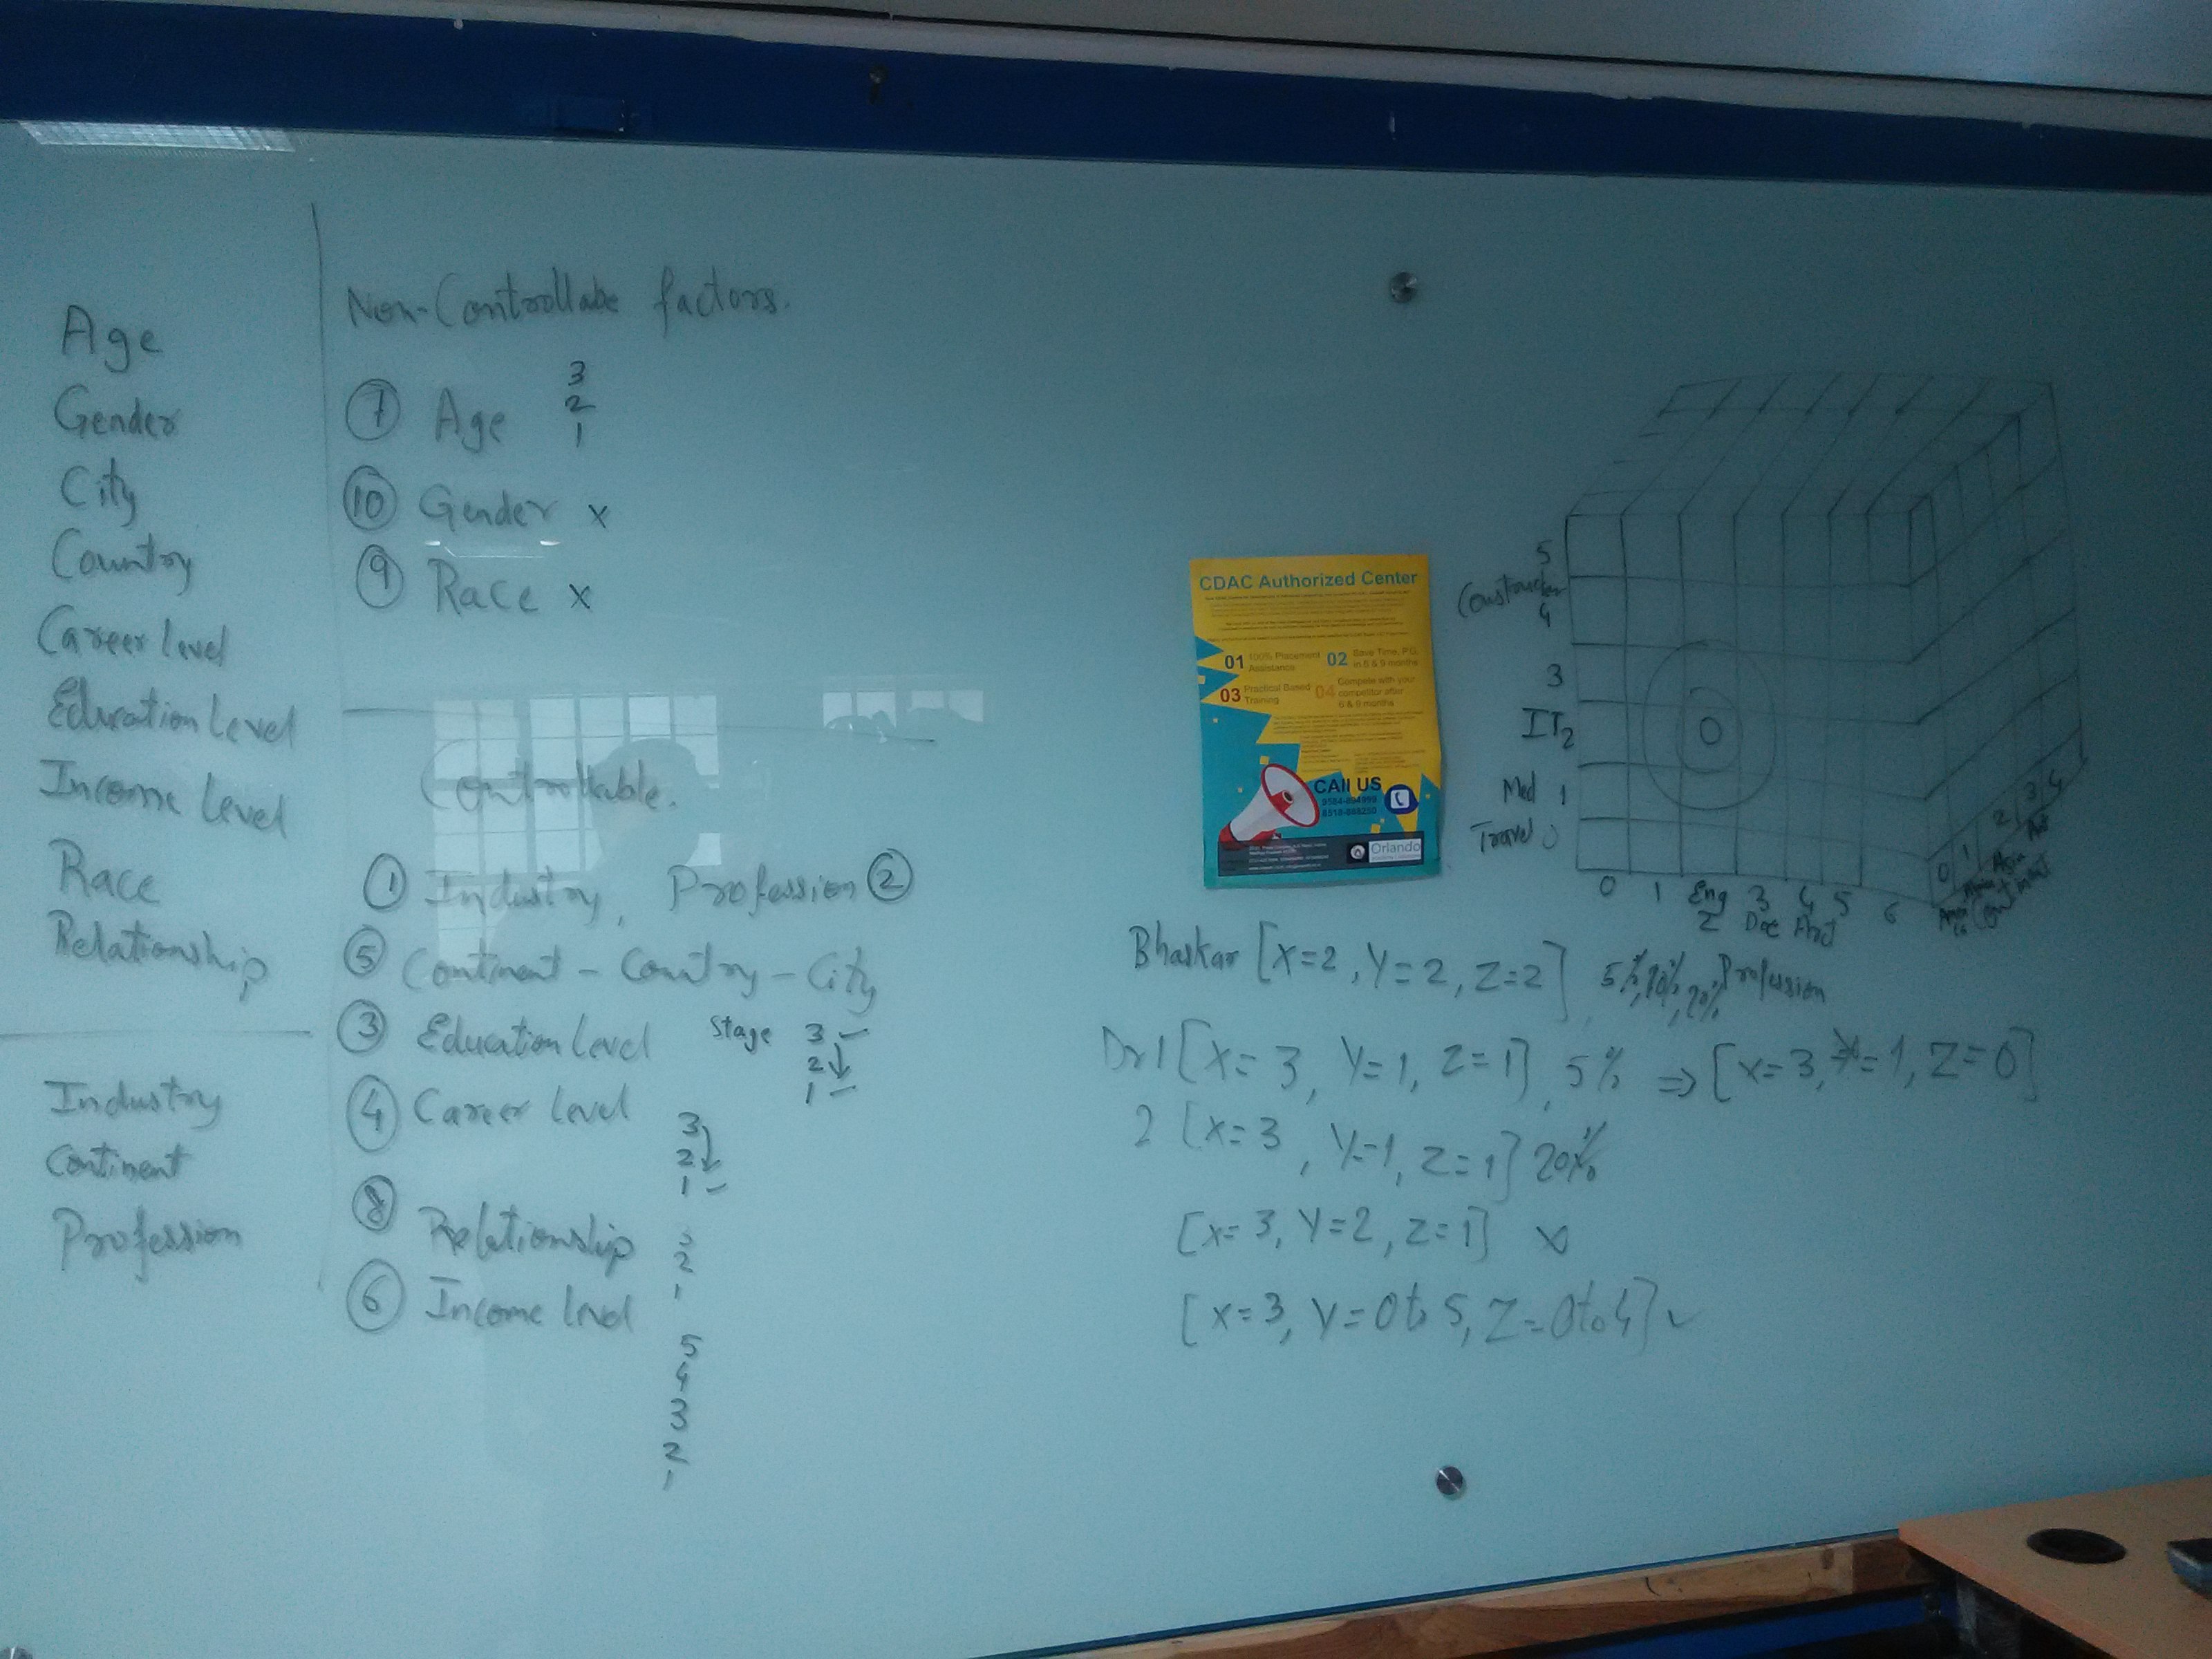 Age
Gender
City
Country
Career level
Education Level
Income Level
Race
Relationship
Industry
Continent
Profession
Non-Controllabe factors.
7 Age 3
2
1
10 Gender x
9 Race x
Controllable.
1 Industry, Profession 2
5 Continent - Country - City
3 Education Level Stage 3
2
1
4 Career level 3
2
1
8 Relationship 3
2
1
6 Income level
5
4
3
2
1
CDAC Authorized Center
01 100% Placement Assistance
02 Save Time, P.G. in 6 & 9 months
03 Practical Based Training
04 Compete with your competitor after 6 & 9 months
CAll US
Orlando
5
4
3
IT 2
Med 1
Travel 0
0 1 Eng 2 3 Doc 4 5 6
0 1 2 3 4
Asia
Continent
Bhaskar [X=2, Y=2, Z=2] 5%, 10%, 20% Profession
Dr 1 [X=3, Y=1, Z=1], 5% ⇒ [X=3, Y=1, Z=0]
2 [X=3, Y=1, Z=1] 20%
[X=3, Y=2, Z=1] x
[X=3, Y=0 to 5, Z=0 to 4] ✓